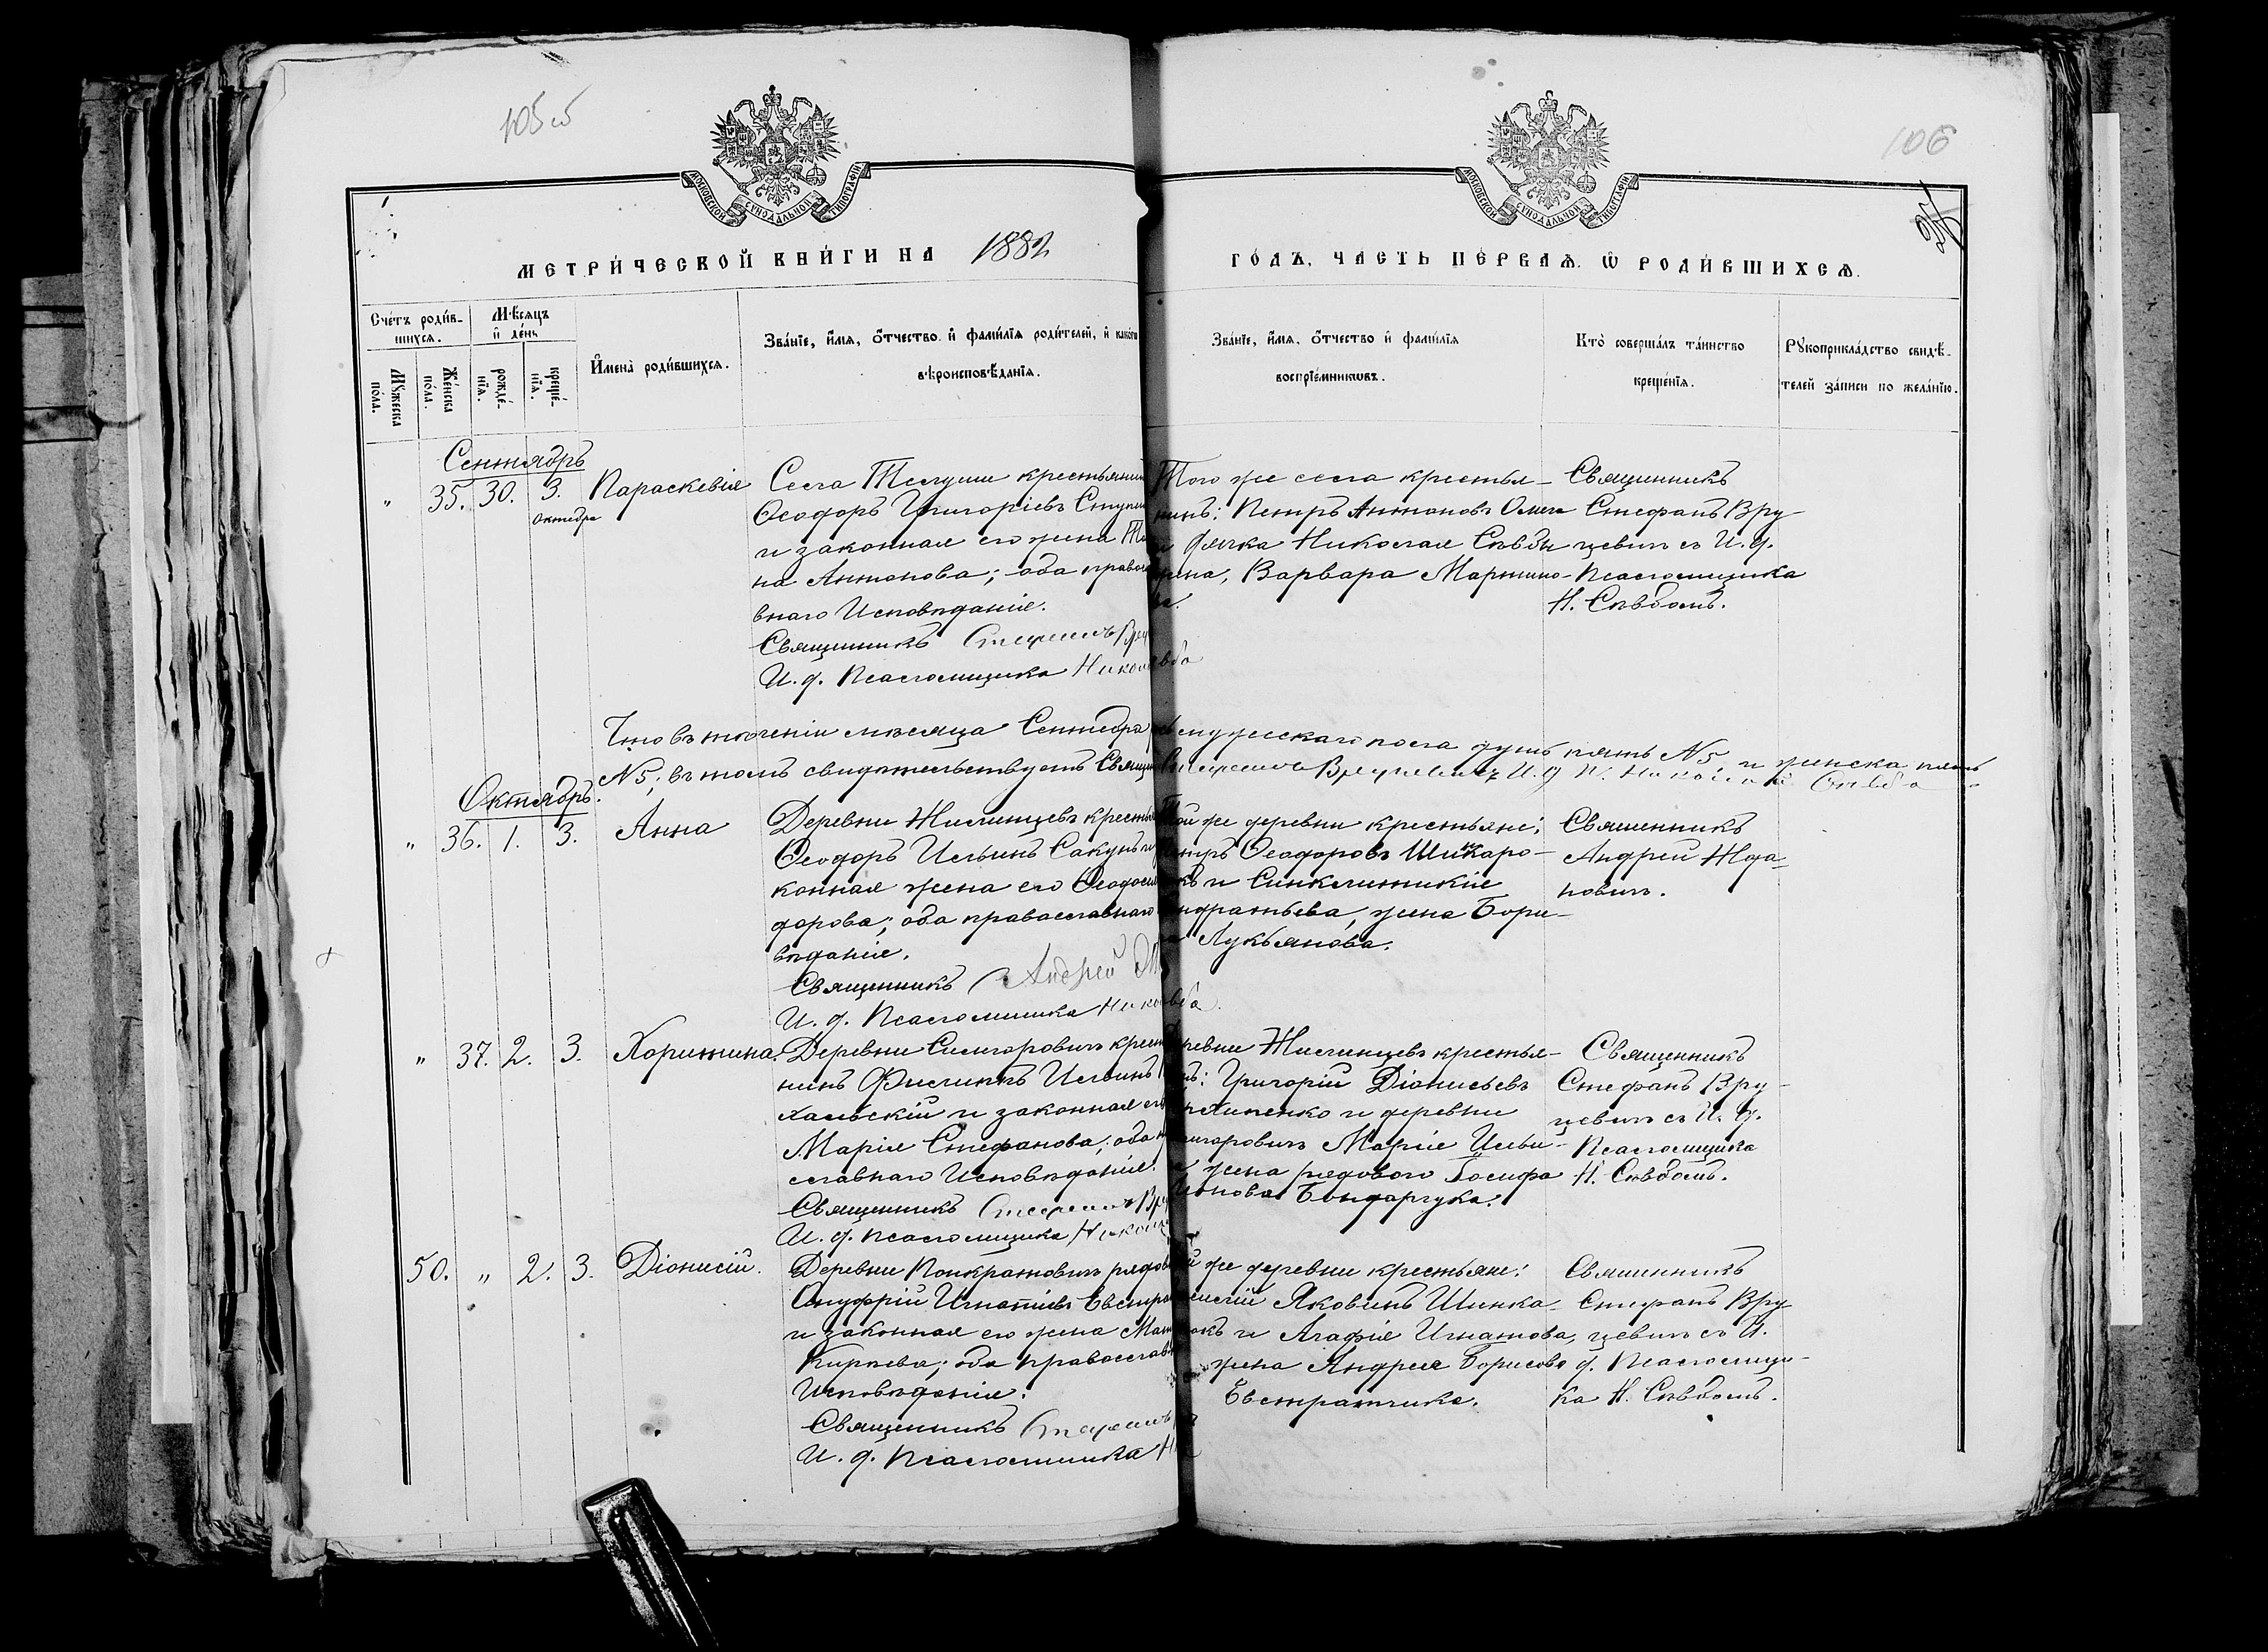 105об
106
МОСКОВСКОЙ СУНОДАЛЬНОЙ ТИПОГРАФІИ
МОСКОВСКОЙ СУНОДАЛЬНОЙ ТИПОГРАФІИ
МЕТРИ́ЧЕСКОЙ КНИ́ГИ НА 1882
ГО́ДЪ, ЧА́СТЬ ПЕ́РВАѦ, Ѡ РОДИ́ВШИХСѦ.
Сче́тъ роди́в-
шихсѧ.
Мꙋ́жеска по́ла.
Же́нска по́ла.
Мѣ́сѧцъ
и҆ де́нь
рожде́-
нїѧ.
креще́-
нїѧ.
И҆мена̀ роди́вшихсѧ.
Зва́нїе, и҆́мѧ, ѻ҆́тчество и҆ фамі́лїѧ роди́телей, и҆ како́гѡ
вѣроисповѣ́данїѧ.
Зва́нїе, и҆́мѧ, ѻ҆́тчество и҆ фамі́лїѧ
воспрїе́мникѡвъ.
Кто̀ соверша́лъ та́инство
креще́нїѧ.
Рꙋкоприкла́дство свидѣ́-
телей за́писи по жела́нїю.
Сентябрь
" 35. 30. 3. Октября
Параскевія
Села крестьянинъ
Ѳеодоръ Григоріевъ
и законная его жена
на Антонова; оба православ
внаго Исповѣданія.
Священникъ Стефанъ
И. д. Псаломщика Никол
Того же села крестья-
нинъ: Петръ Антоновъ
Николая
жена, Варвара Мартино-
ва.
Священникъ
Стефанъ Вру-
цевичъ съ И. д.
Псаломщика
Н. Сѣвбомъ.
Что въ теченіи мѣсяца Сентября мужескаго пола душъ пять №5, и женска пять
№5, въ томъ свидѣтельствуетъ Священ Стефанъ Вруцевичъ И. д. П. Николай Сѣвба
Октябрь.
" 36. 1. 3.
Анна
Деревни Жилинцевъ крестья
Ѳеодоръ Ильинъ Сакунъ и
конная жена его Ѳеодосія
дорова; оба православнаго
вѣданія.
Священникъ Андрей
И. д. Псаломщика Никол
Той же деревни крестьяне:
Ѳеодоровъ Шинкаро-
къ и Синклитикія
жена Бори-
са Лукьянова.
Священникъ
Андрей Жда-
новичъ.
" 37. 2. 3.
Харитина.
Деревни Силигоровичъ крест
нинъ Филиппъ Ильинъ
хальскій и законная его
Марія Стефанова; оба
славнаго Исповѣданія.
Священникъ Стефанъ Вру
И. д. Псаломщика Никол
Деревни Жилинцевъ крестья-
нинъ: Григорій Діонисьевъ
и деревни
Силигоровичъ Марія Ильи-
на, жена рядового Іосифа
Бондарчука.
Священникъ
Стефанъ Вру-
цевичъ съ И. д.
Псаломщика
Н. Сѣвбомъ.
50. " 2. 3.
Діонисій.
Деревни Понкратовичъ рядов
Онуфрій Игнатіевъ Евстра
и законная его жена
Кирѣева; оба православн
Исповѣданія.
Священникъ Стефанъ
И. д. Псаломщика
Той же деревни крестьяне:
Яковинъ Шинка-
рокъ и Агафія Игнатова,
жена Андрея Борисова
Евстратчика.
Священникъ
Стефанъ Вру
цевичъ съ И.
д. Псаломщи-
ка Н. Сѣвбомъ.